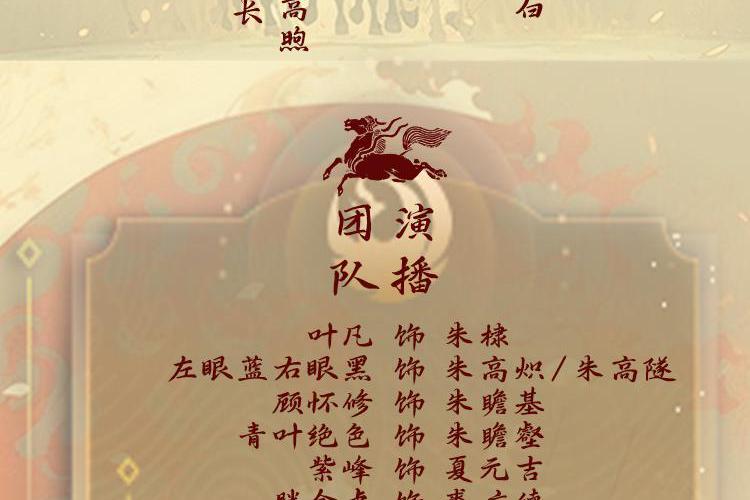 长
高煦
演播
团队
叶凡 饰 朱棣
左眼蓝右眼黑 饰 朱高炽/朱高隧
顾怀修 饰 朱瞻基
青叶绝色 饰 朱瞻壑
紫峰 饰 夏元吉